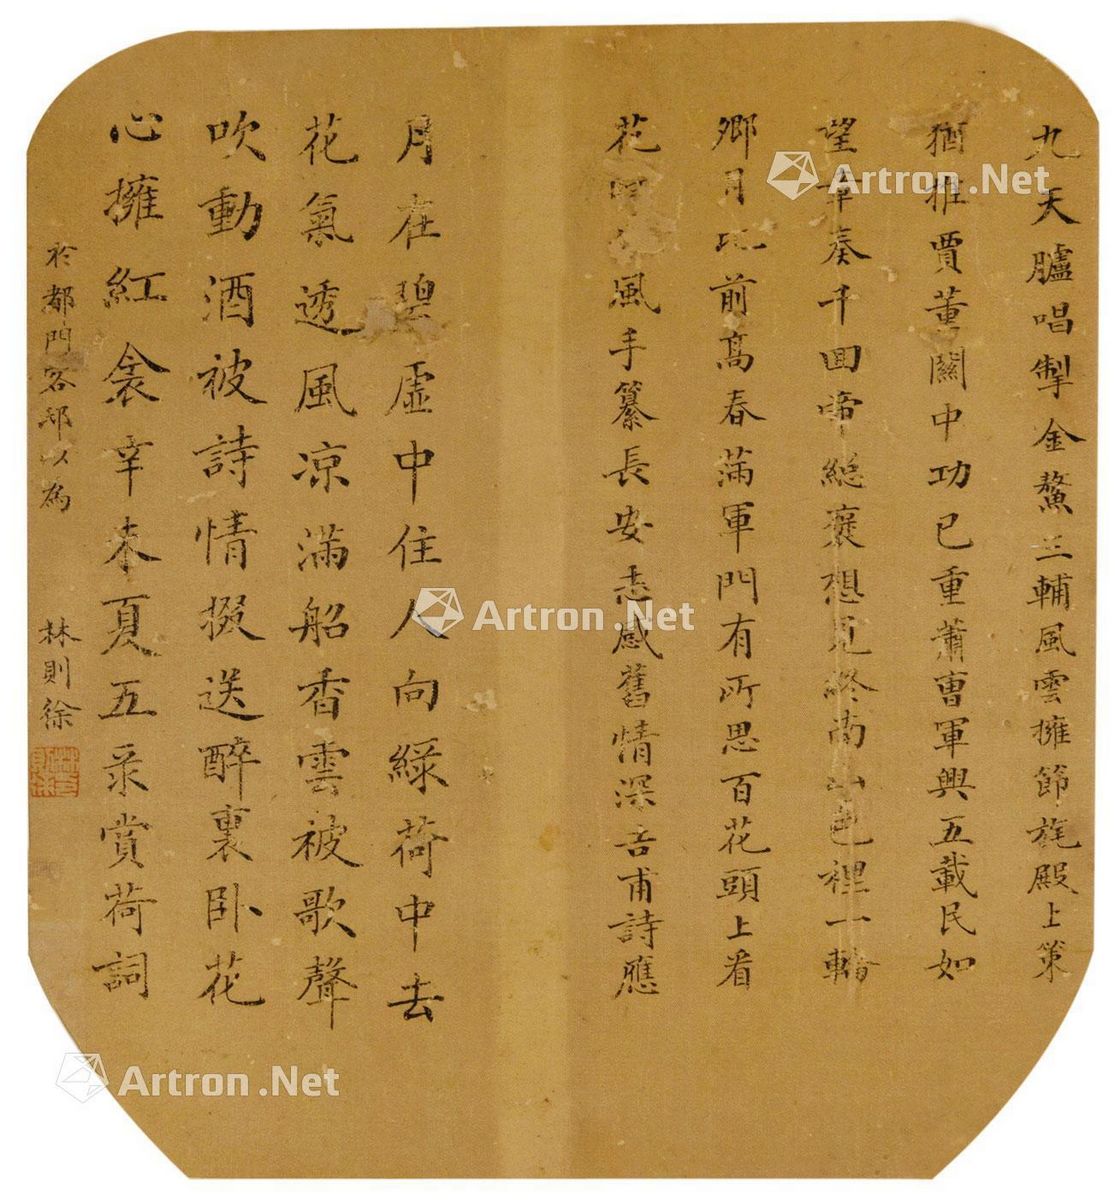 九天臚唱掣金鰲三輔風雲擁節旄殿上策
猶推賈董關中功已重蕭曹軍興五載民如
望章奏千回帝總褒想見終南山色裡一輪
鄉月比前高春滿軍門有所思百花頭上看
花 風手纂長安志感舊情深吉甫詩應
月在碧虛中住人向綠荷中去
花氣透風涼滿船香雲被歌聲
吹動酒被詩情掇送醉裏卧花
心擁紅衾辛未夏五采賞荷詞
於都門客邸以為
林則徐
Artron.Net
Artron.Net
Artron.Net